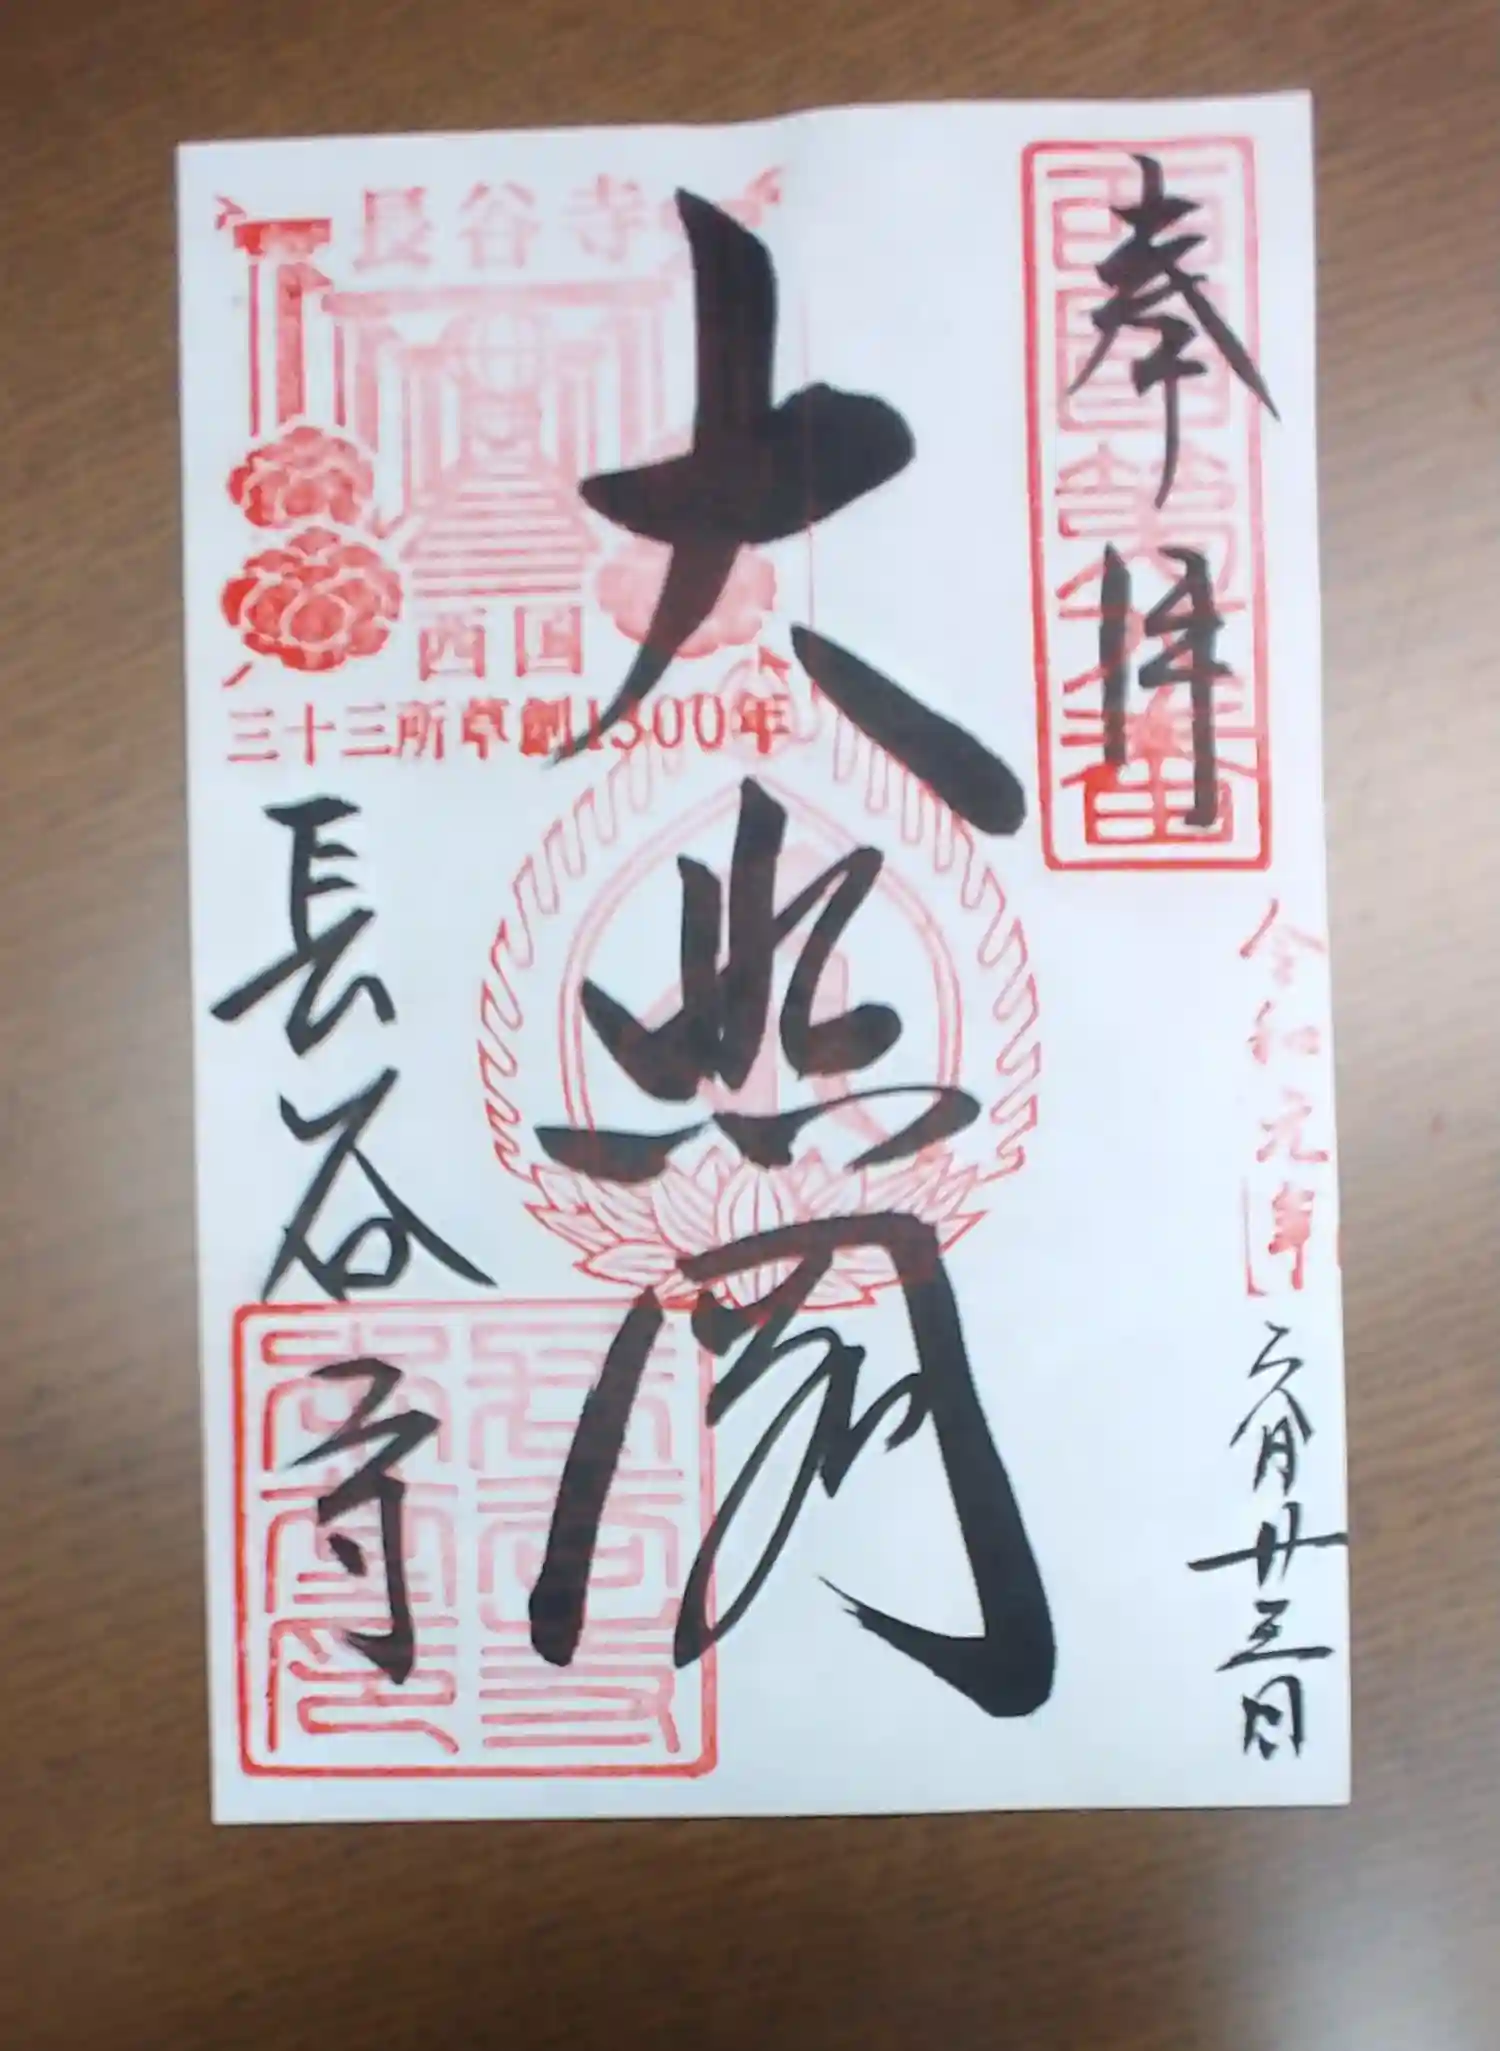 奉拝
西国第八番
令和元年
六月廿三日
大悲閣
長谷寺
西国
三十三所草創1300年
長谷寺